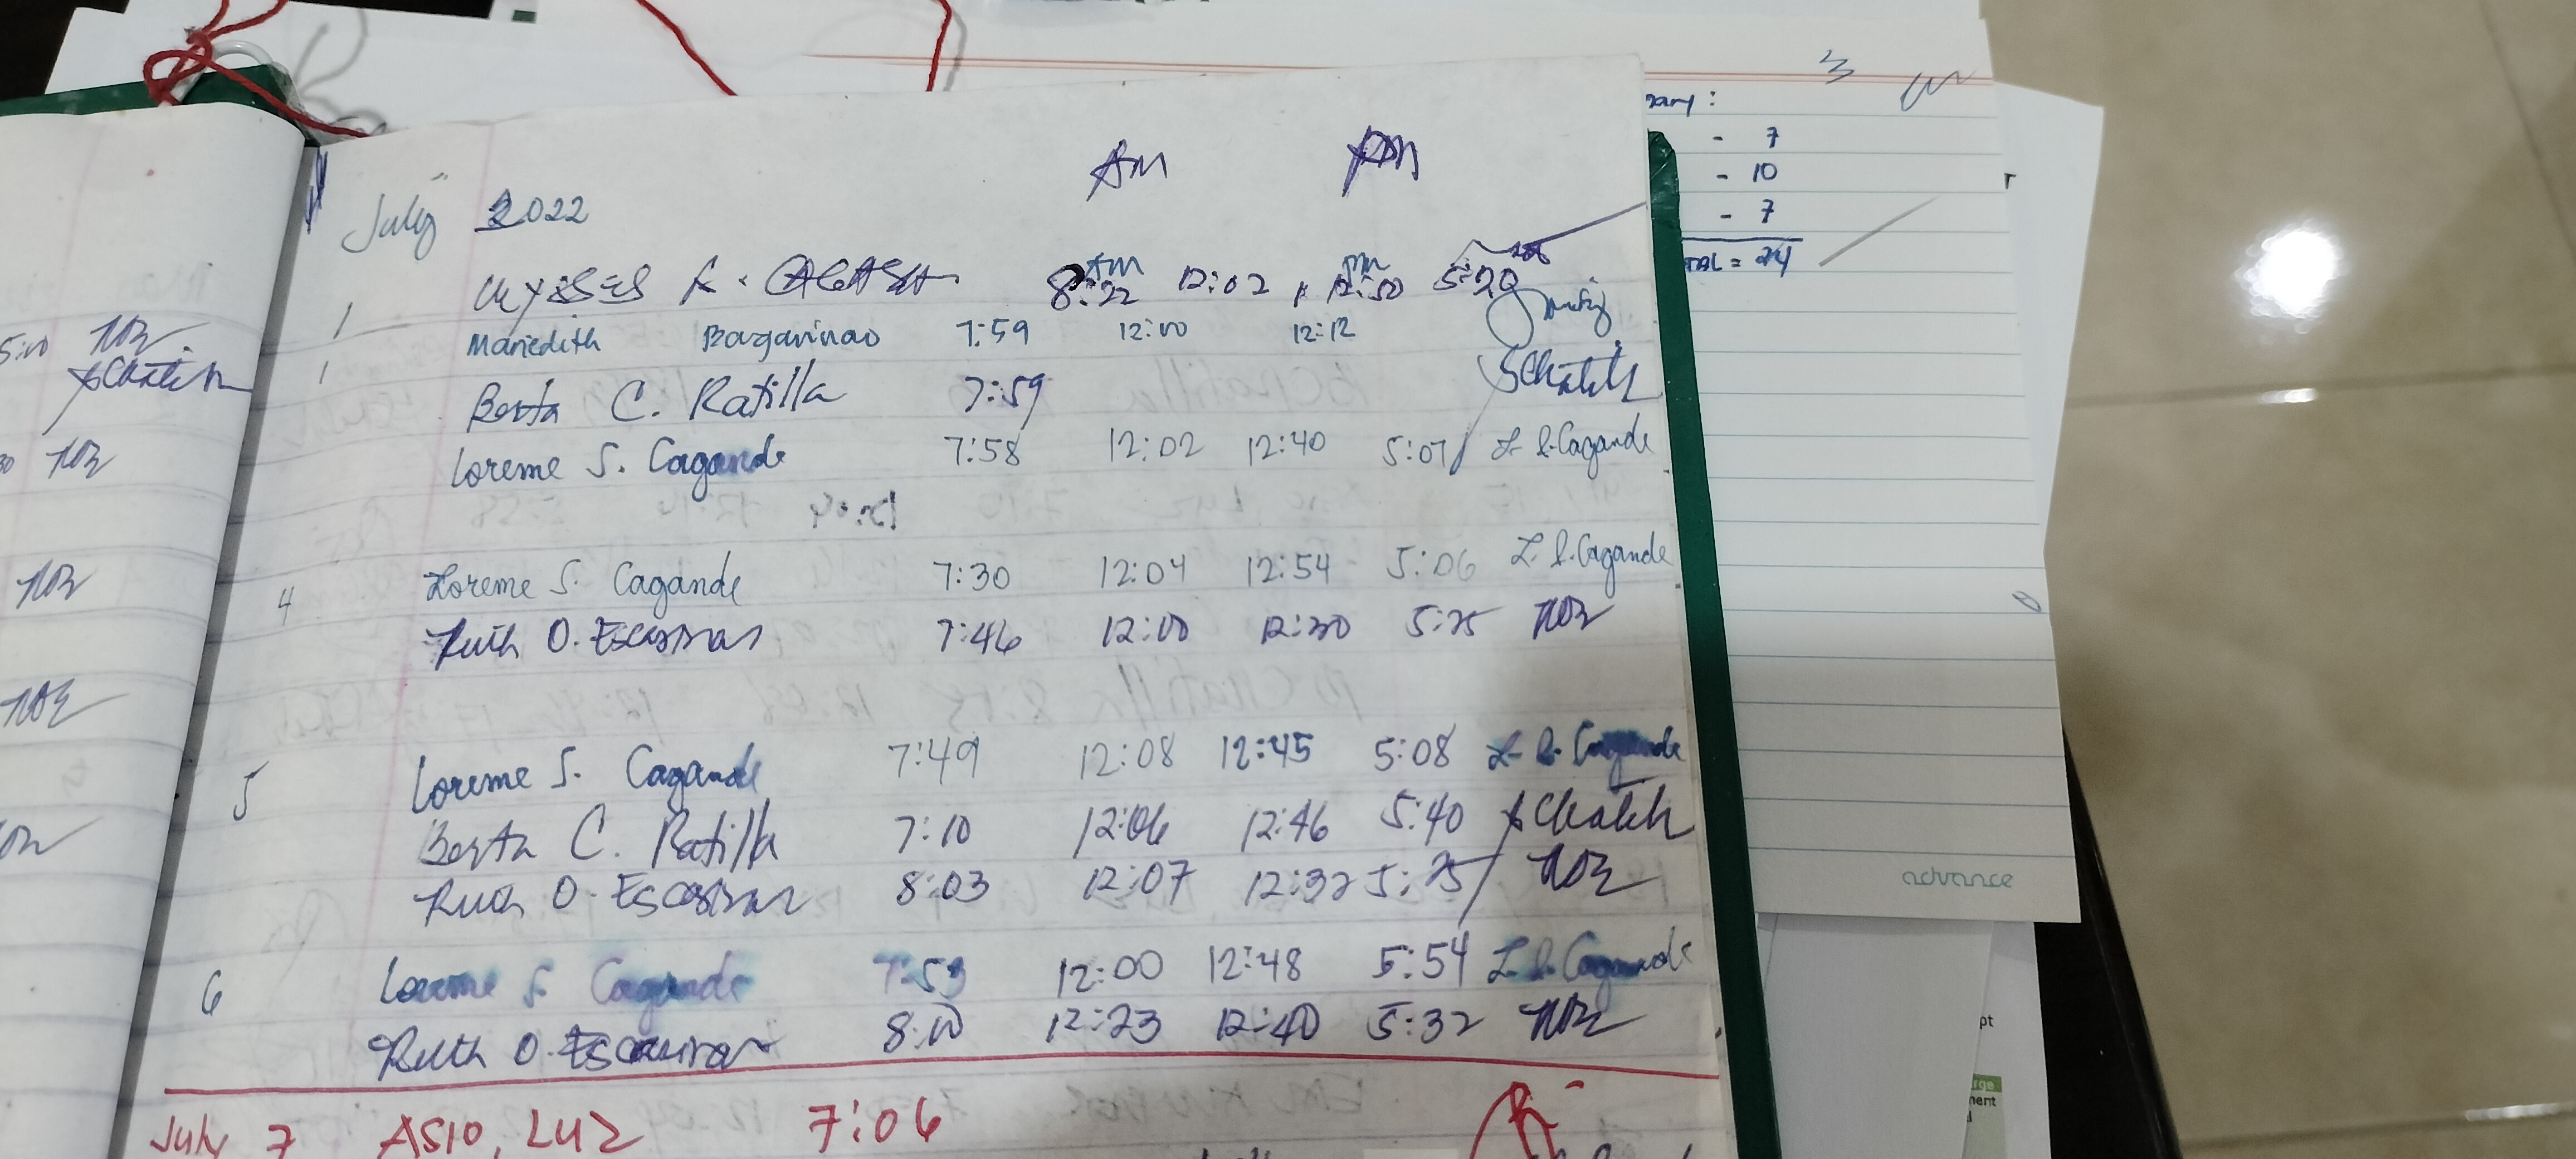 AM PM
July 2022
1 Ulysses 8:22 AM 12:02 PM 12:50 5:20
1 Mariedith Bagarinao 7:59 12:00 12:12
Berta C. Ratilla 7:59
Loreme S. Cagande 7:58 12:02 12:40 5:07 L. S. Cagande
4 Loreme S. Cagande 7:30 12:04 12:54 5:06 L. S. Cagande
Ruth O. Escasinas 7:46 12:00 12:30 5:25
5 Loreme S. Cagande 7:49 12:08 12:45 5:08 L. S. Cagande
Berta C. Ratilla 7:10 12:06 12:46 5:40
Ruth O. Escasinas 8:03 12:07 12:32 5:25
6 Loreme S. Cagande 7:53 12:00 12:48 5:54 L. S. Cagande
Ruth O. Escasinas 8:00 12:23 12:40 5:32
July 7 ASIO, LUZ 7:06
5:00
3
- 7
- 10
- 7
= 24
advance